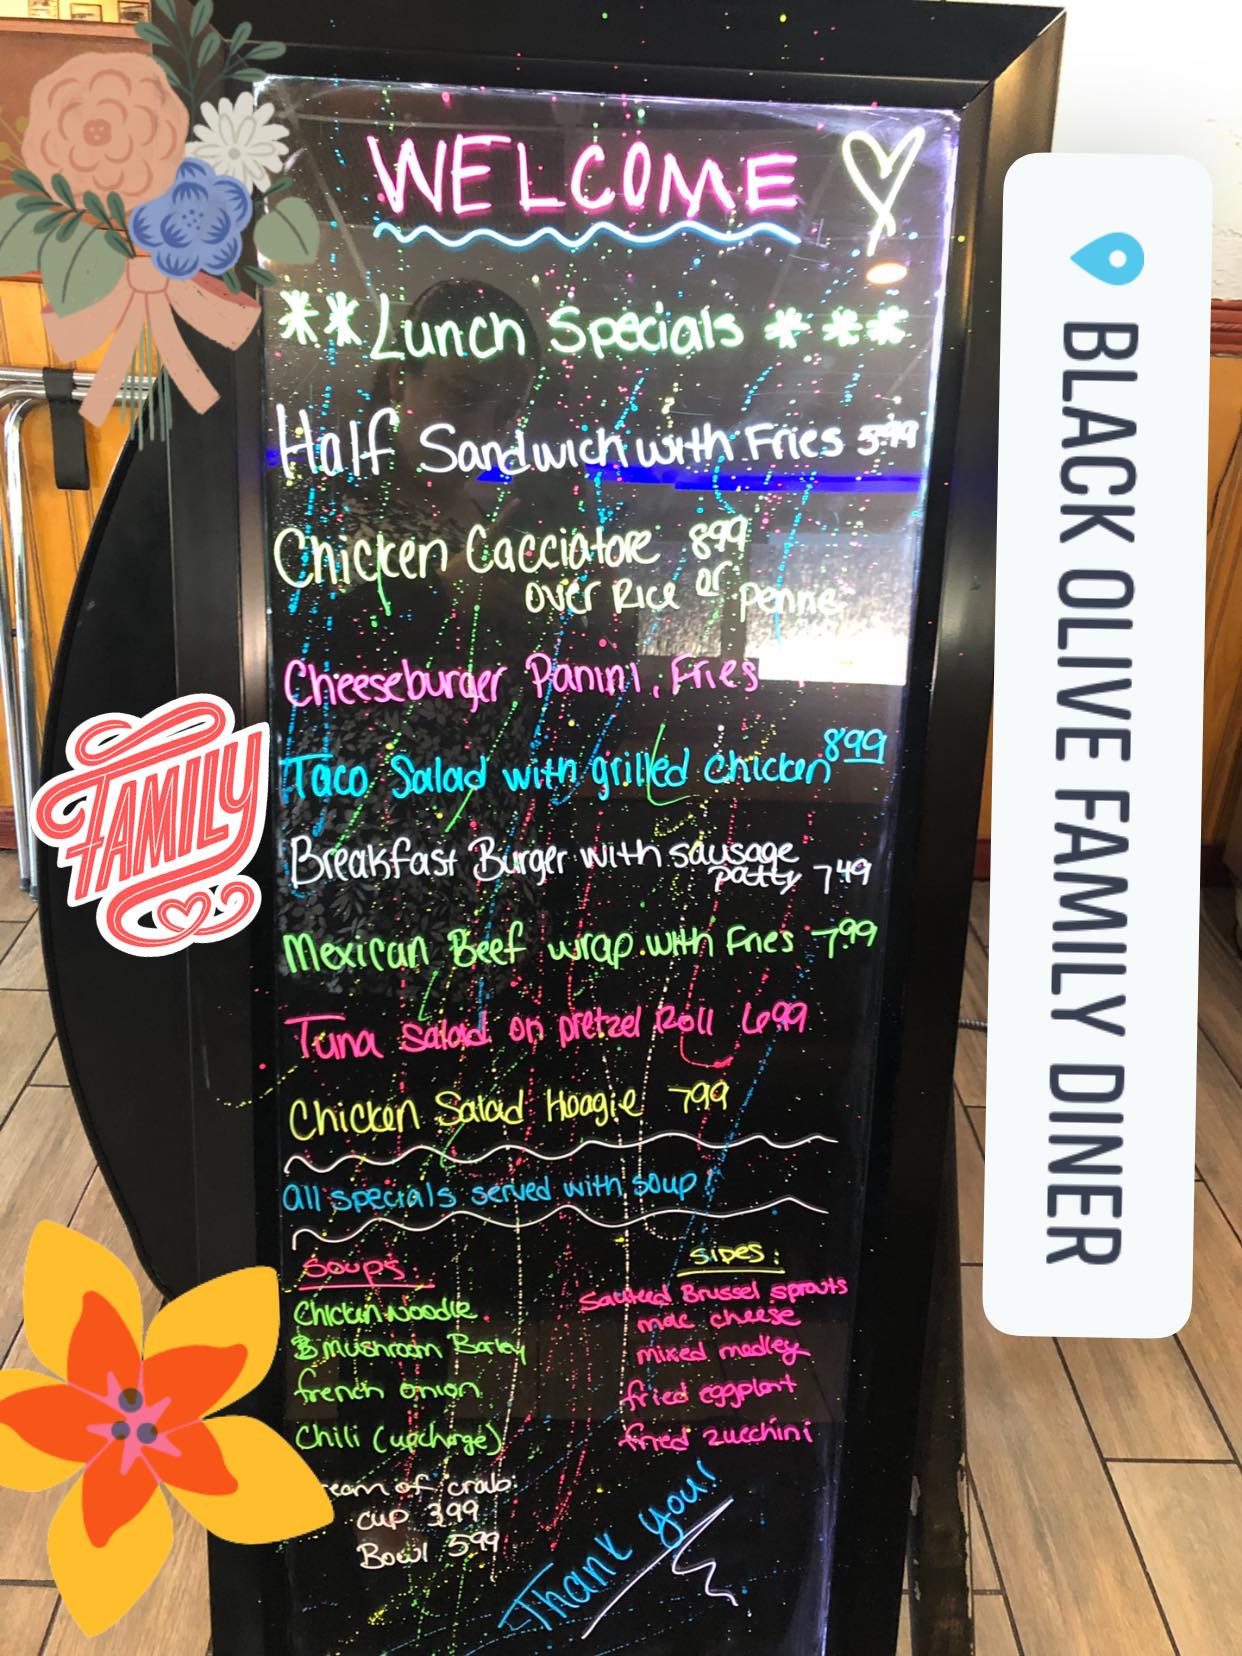 WELCOME
**Lunch Specials ***
Half Sandwich with Fries 5.99
Chicken Cacciatore 899
over Rice or penne
Cheeseburger Panini, Fries
Taco Salad with grilled chicken 8.99
Breakfast Burger with sausage
patty 7.49
Mexican Beef wrap with Fries 7.99
Tuna Salad on pretzel Roll 6.99
Chicken Salad Hoagie 799
all specials served with soup!
Soups:
Chicken noodle
& mushroom Barley
french onion
Chili (upcharge)
eam of crab
cup 3.99
Bowl 5.99
SIDES:
Sauteed Brussel sprouts
mac cheese
mixed medley
fried eggplant
fried zucchini
Thank you!
FAMILY
BLACK OLIVE FAMILY DINER